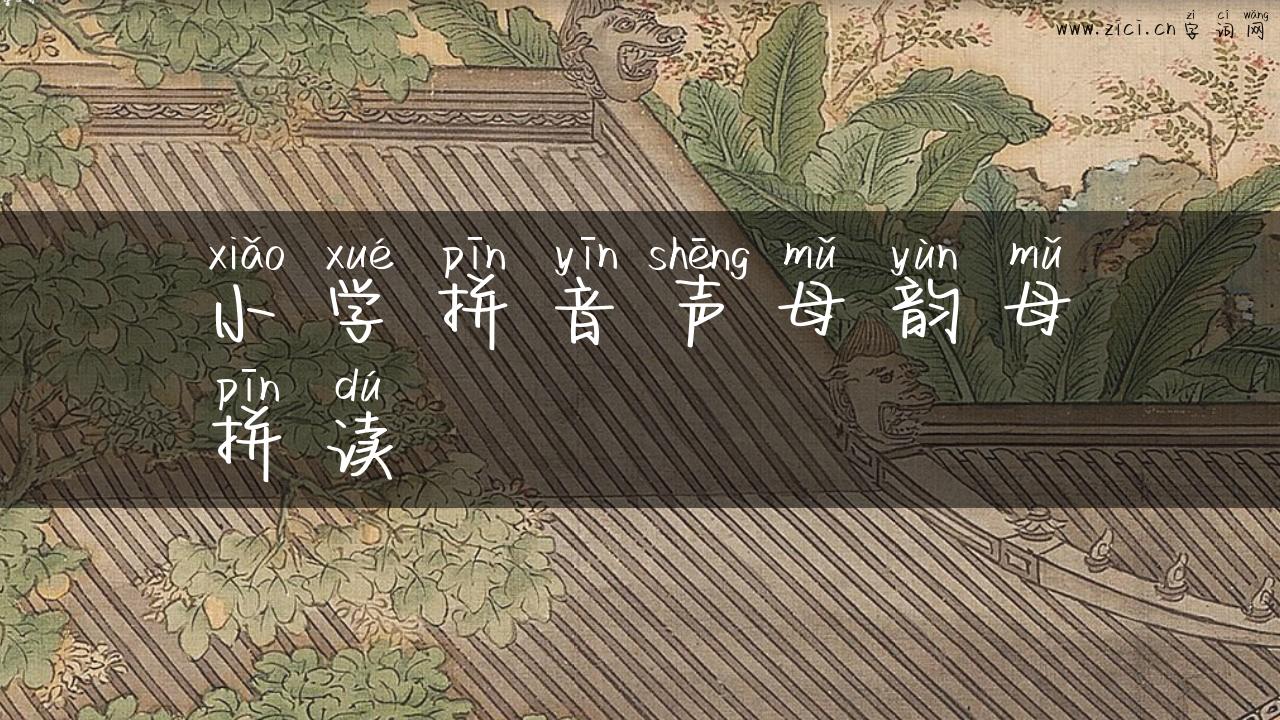 zì cí wǎng
www.zici.cn 字 词 网
xiǎo xué pīn yīn shēng mǔ yùn mǔ
小 学 拼 音 声 母 韵 母
pīn dú
拼 读